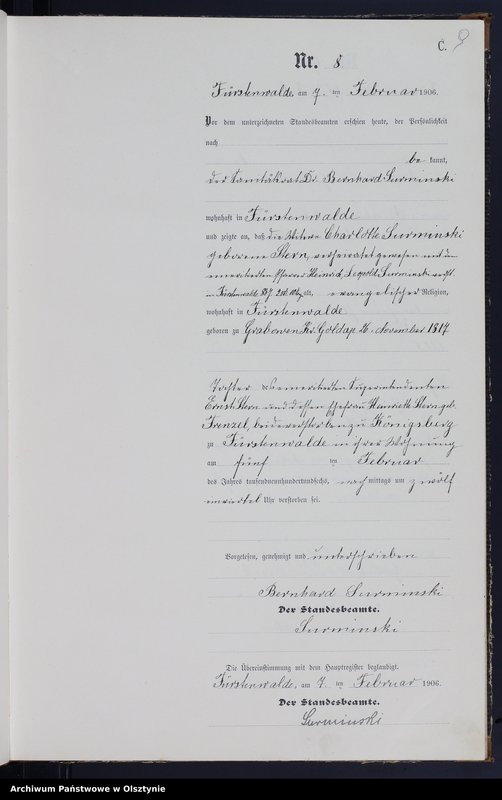 C. 8
Nr. 8
Fürstenwalde, am 7. ten Februar 1906.
Vor dem unterzeichneten Standesbeamten erschien heute, der Persönlichkeit
nach
be kannt,
der Sanitätsrat Dr. Bernhard Surminski
wohnhaft in Fürstenwalde
und zeigte an, daß die Witwe Charlotte Surminski
geborene Stern, verheiratet gewesen mit dem
emeritierten Pfarrer Heinrich Leopold Surminski
in Fürstenwalde, alt, evangelischer Religion,
wohnhaft in Fürstenwalde
geboren zu Grabowen Kr. Goldap 26. November 1817
Tochter des emeritierten Superintendenten
Ernst Stern und dessen Ehefrau Henriette Stern geb.
Frenzel, beide verstorben zu Königsburg
zu Fürstenwalde in ihrer Wohnung
am fünf ten Februar
des Jahres tausendneunhundertundsechs, nach mittags um zwölf
Uhr verstorben sei.
Vorgelesen, genehmigt und unterschrieben
Bernhard Surminski
Der Standesbeamte.
Surminski
Die Übereinstimmung mit dem Hauptregister beglaubigt.
Fürstenwalde, am 7. ten Februar 1906.
Der Standesbeamte.
Surminski
Archiwum Państwowe w Olsztynie